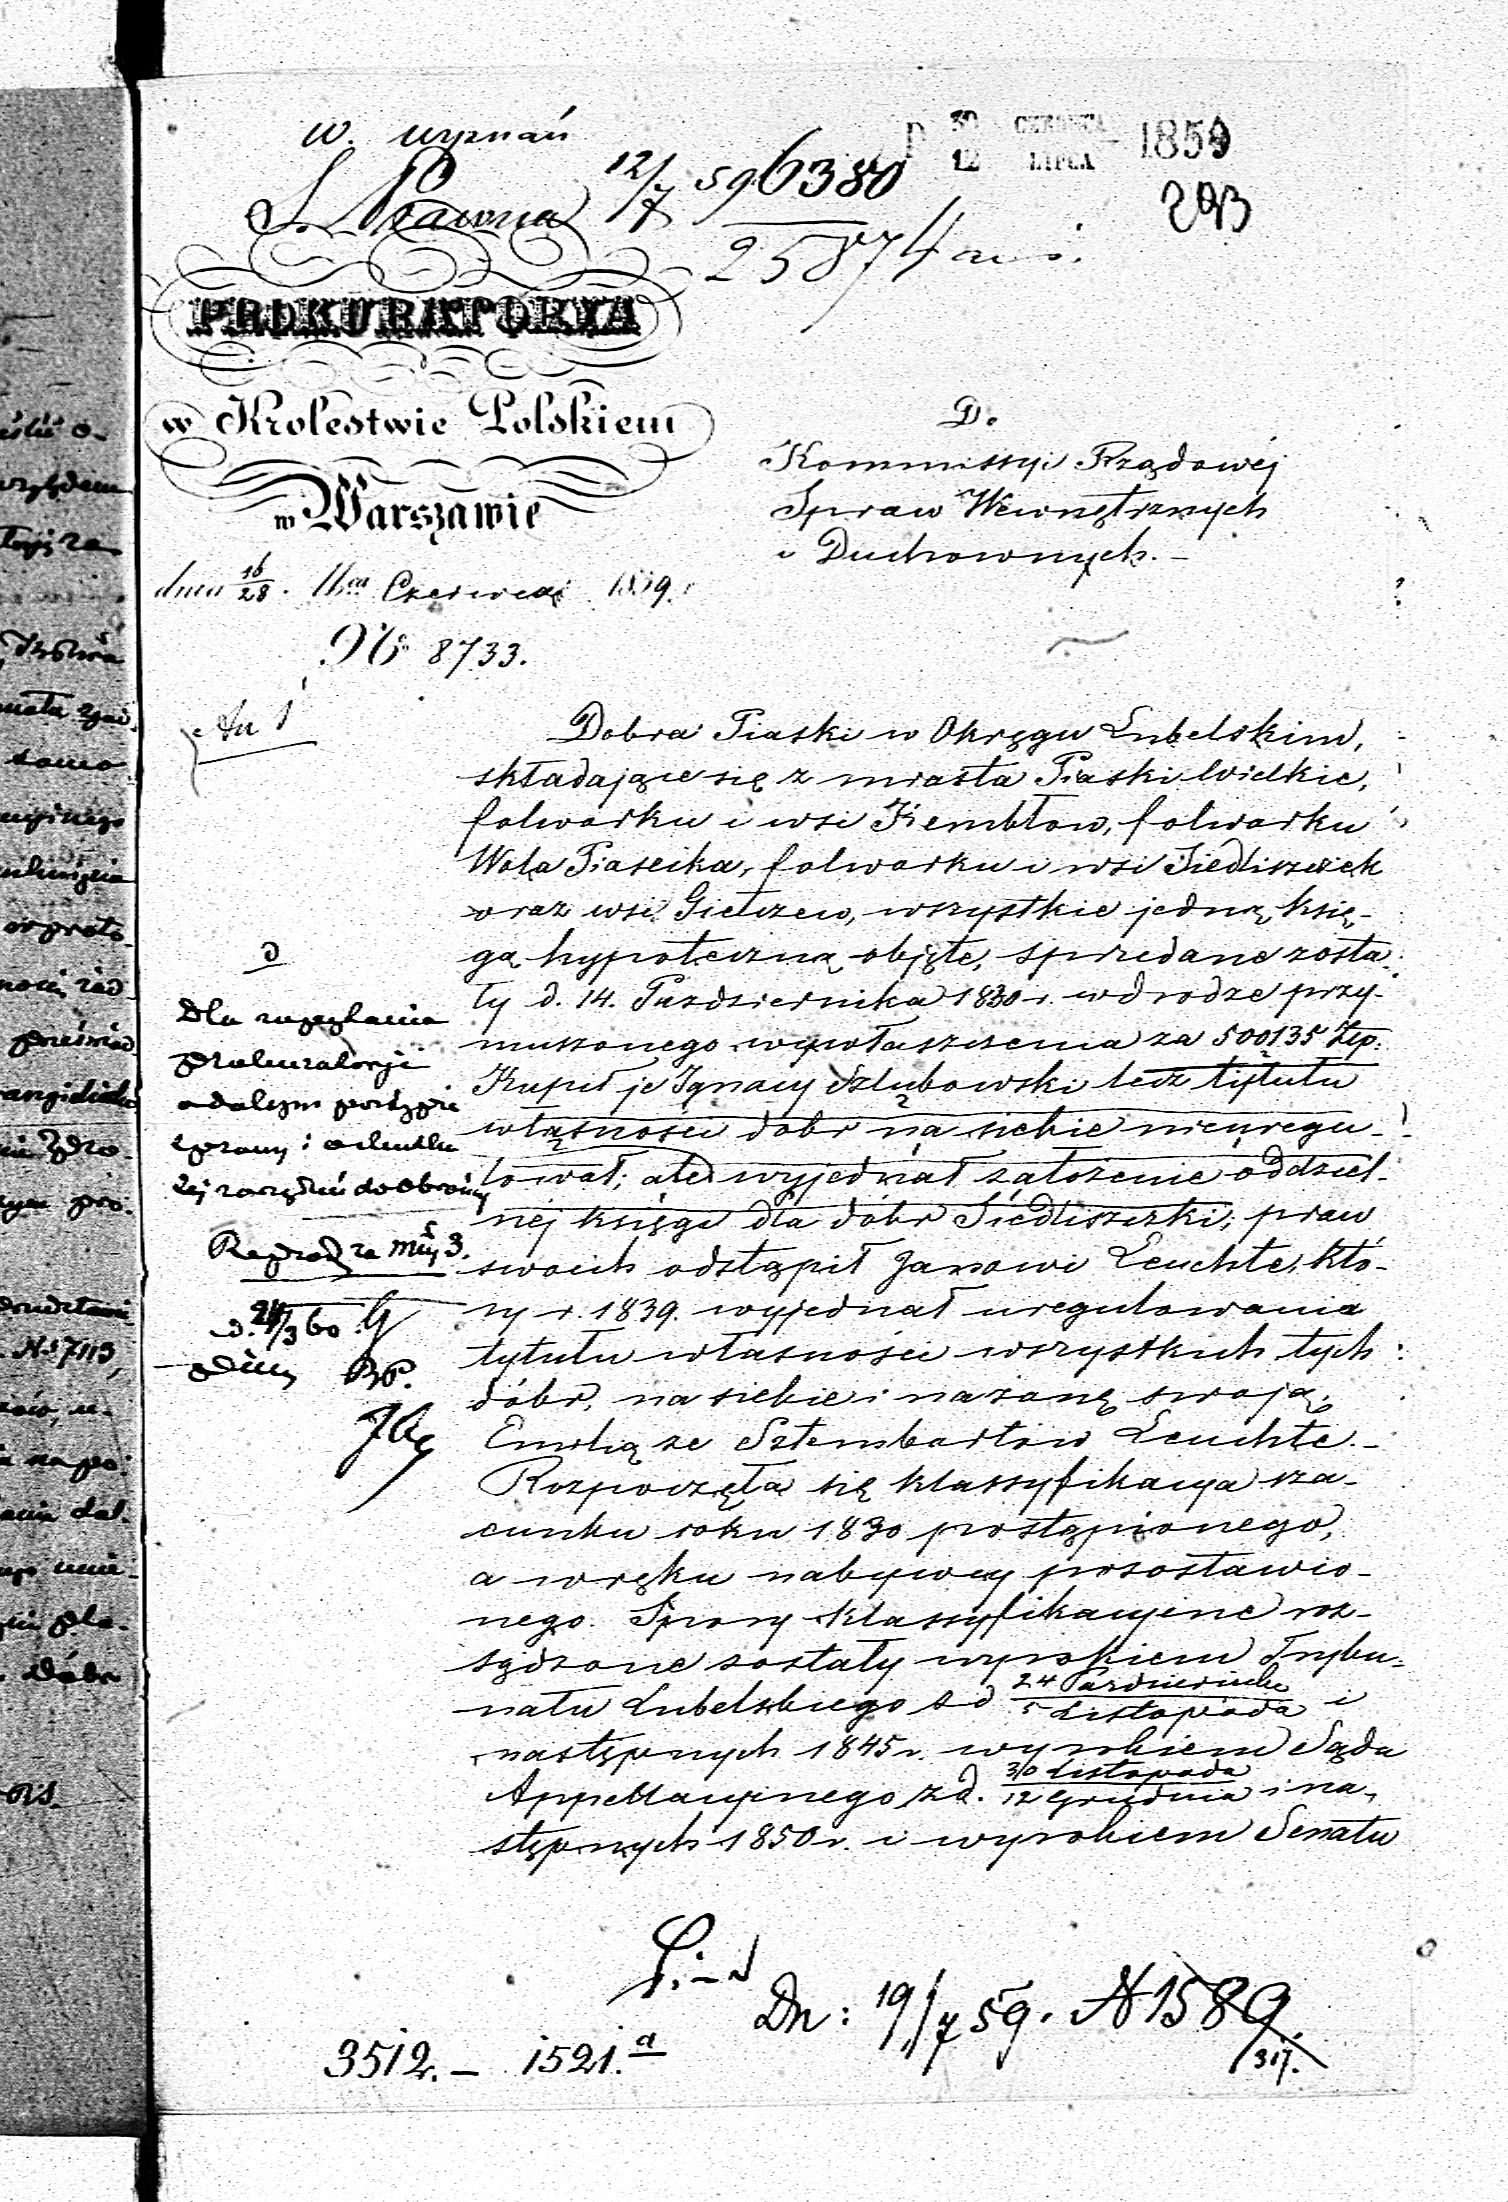 w. wyznań
S. Prawna 12/7 59 6380
25874
D 30 CZERWCA
12 LIPCA 1859
293
PROKURATORYA
w Krolestwie Polskiem
w Warszawie
dnia 16/28 Czerwca 1859.
No 8733.
Do
Kommissyi Rządowéj
Spraw Wewnętrznych
i Duchownych. –
Dobra Piaski w Okręgu Lubelskim,
składające się z miasta Piaski Wielkie,
folwarku i wsi Kembłow, folwarku
Wola Piasecka, folwarku i wsi Siedliszczek
oraz wsi Giełczew, wszystkie jedną księ-
gą hypoteczną objęte, sprzedane zosta-
ły d. 14. Października 1830 r. w drodze przy-
muszonego wywłaszczenia za 500135 Złp.
Kupił je Ignacy Szlubowski lecz tytułu
własności dobr na siebie nieuregu-
lował; ale wyjednał założenie oddziel-
néj księgi dla dóbr Siedliszczki; praw
swoich odstąpił Janowi Leuchte, któ-
ry r. 1839. wyjednał uregulowania
tytułu własności wszystkich tych
dóbr, na siebie i na żonę swoją,
Emilią ze Sztembartow Leuchte. –
Rozpoczęła się klassyfikacya sza-
cunku roku 1830 postąpionego,
a w ręku nabywcy pozostawio-
nego. Spory klassyfikacyine roz-
sądzone zostały wyrokiem Trybu-
nału Lubelskiego z d 24 Października / 5 Listopada i
następnych 1845 r. wyrokiem Sądu
Appellacyinego z d. 30 Listopada / 12 Grudnia i na-
stępnych 1850 r. i wyrokiem Senatu
Dla zapytania
prokuratorji
o dalszym postępie
sprawy i o skutku
jej zarządzeń do Obrońcy
d. 24/3 60
3512. – 1521.a
Dn: 19/7 59. N 1589.
317.